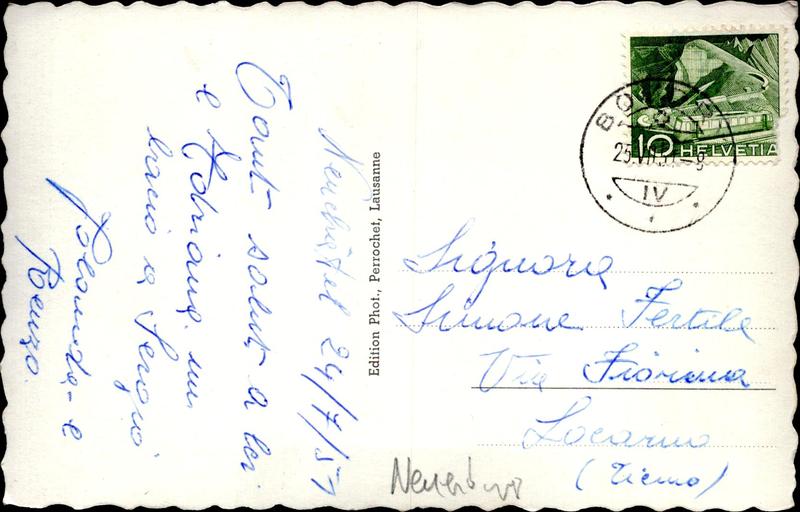 Neuchâtel 24/7/51
Tanti saluti a lei
e Adriana. un
bacio a Sergio
e
Renzo.
Edition Phot., Perrochet, Lausanne
25.VII.51-8
IV
10 HELVETIA
Signora
Simone Fertile
Via
Locarno
(Ticino)